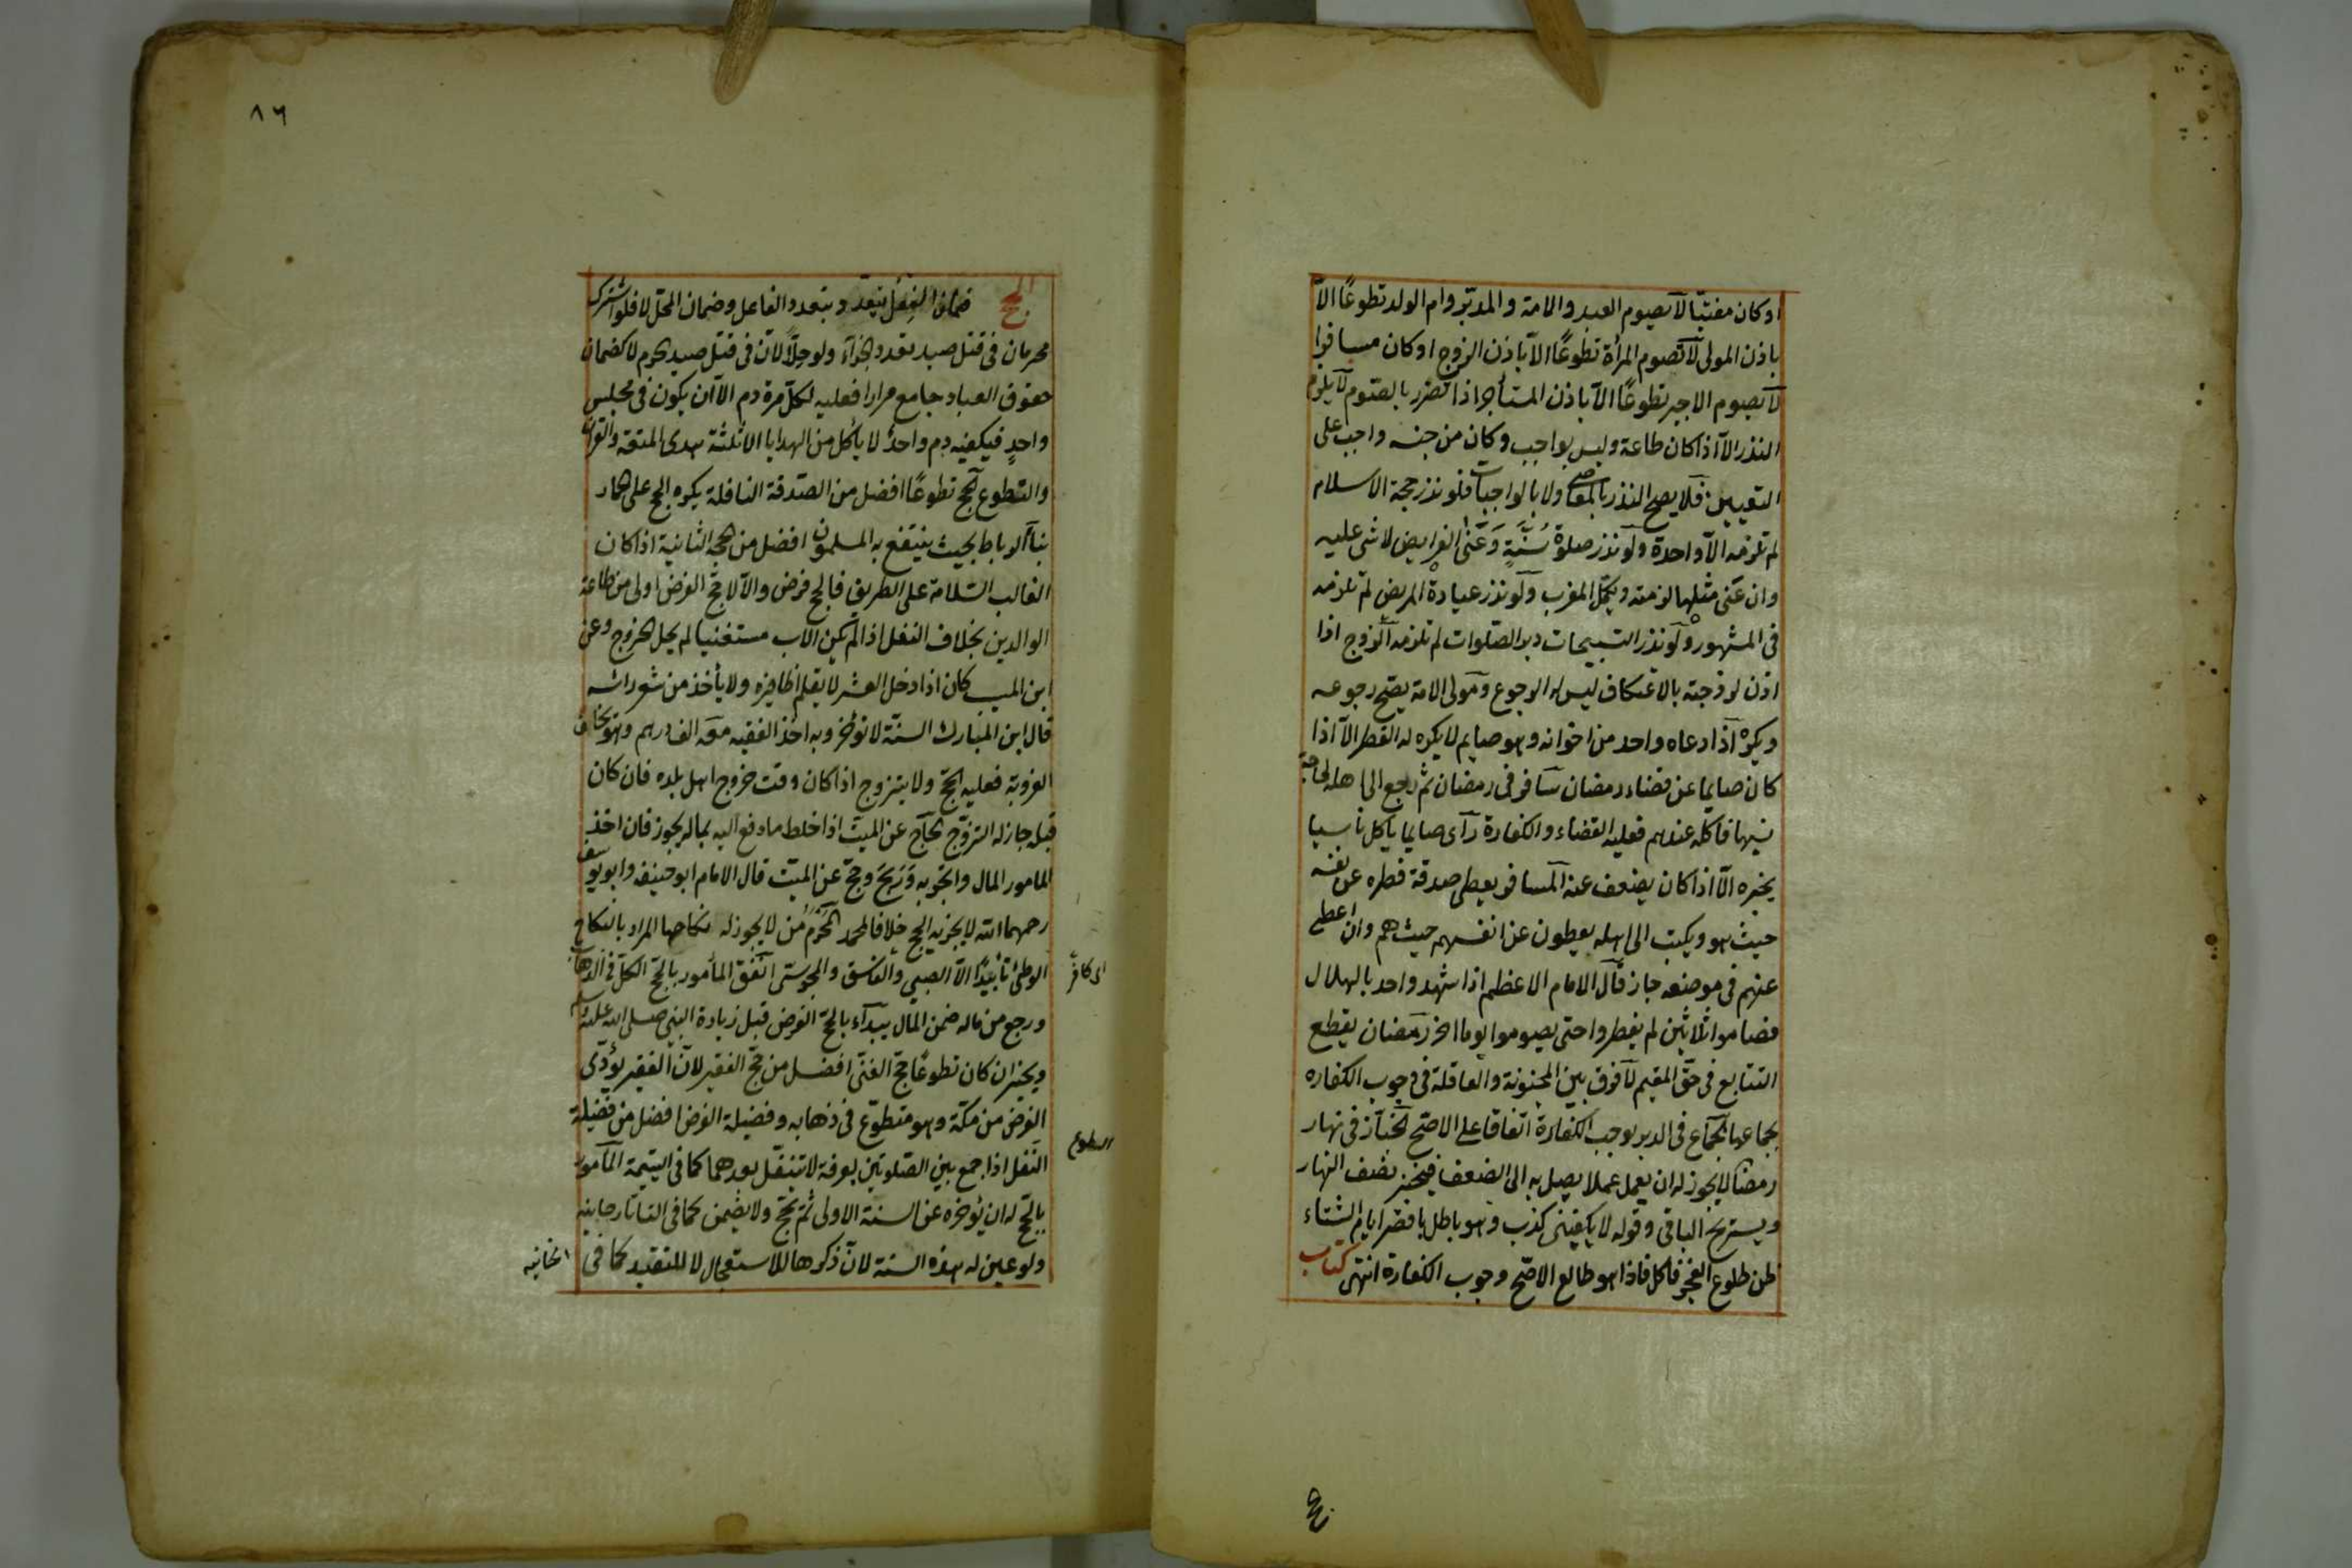 او كان مفتيا لا يصوم العبد والامة والمدبّر وام الولد تطوعًا الّا
باذن المولى لا تصوم المرأة تطوعًا الّا باذن الزوج او كان مسافرا
لا يصوم الاجير تطوعًا الّا باذن المستأجر اذا تضرر بالصّوم لا يلزم
النذر الّا اذا كان طاعة وليس بواجب وكان من جنسه واجب على
التعيين فلا يصح النذر بالمعاصى ولا بالواجبات فلو نذر حجة الاسلام
لم تلزمه الّا واحدة ولو نذر صلوة سُنّةٍ وَعَنٰى الفرايض لا شى عليه
وان عنى مثلها لزمته ويكمّل المغرب ولو نذر عيادة المريض لم تلزمه
فى المشهور ولو نذر التسبيحات دبر الصّلوات لم تلزمه الزوج اذا
اذن لزوجته بالاعتكاف ليس له الرجوع ومولى الامة يصّح رجوعه
ويكره اذا دعاه واحد من اخوانه وهو صايم لا يكره له الفطر الّا اذا
كان صايما عن قضاء رمضان سافر فى رمضان ثم رجع الى اهله لحاجة
نسيها فاكله عندهم فعليه القضاء والكفارة رآى صايما ياكل ناسيا
يخبره الّا اذا كان يضعف عنه المسافر يعطى صدقة فطره عن نفسه
حيث هو ويكتب الى اهله يعطون عن انفسهم حيث هم وان اعطى
عنهم فى موضعه جاز قال الامام الاعظم اذا شهد واحد بالهلال
فصاموا ثلاثين لم يفطروا حتى يصوموا يوما اخر رمضان يقطع
التتابع فى حقّ المقيم لا فرق بين المجنونة والعاقلة فى وجوب الكفاره
بجماعها الجماع فى الدبر يوجب الكفّارة اتفاقا على الاصّح الخبّاز فى نهار
رمضا لا يجوز له ان يعمل عملا يصل به الى الضعف فيخبز نصف النهار
ويستريح الباقى وقوله لا يكفينى كذب وهو باطل باقصر ايام الشتاء
ظن طلوع الفجر فاكل فاذا هو طالع الاصّح وجوب الكفارة انتهى كتاب
٨٦
الحج ضمان الفعل يتعدد بتعدد الفاعل وضمان المحلّ لا فلو اشترك
محرمان فى قتل صيد تعدد الجزآء ولو حِلاًّ لانّ فى قتل صيد الحرم لا كضمان
حقوق العباد جامع مرارا فعليه لكلّ مرة دم الّا ان يكون فى مجلس
واحدٍ فيكفيه دم واحد لا يأكل من الهدايا الّا ثلثة هدى المتعة والقران
والتّطوع الحج تطوعًا افضل من الصّدقة النافلة يكره الحج على حمار
بنآء الرباط بحيث ينتفع به المسلمون افضل من الحجّة الثانية اذا كان
الغالب السّلامة على الطريق فالحج فرض والّا لا حجّ الفرض اولى من طاعة
الوالدين بخلاف النفل اذا لم يكن الاب مستغنيا لم يحل الخروج وعن
ابن المسيب كان اذا دخل العشر لا يقلم اظافيره ولا يأخذ من شعر راسه
قال ابن المبارك السنّة لا تؤخّر وبه اخذ الفقيه معه الف درهم وهو يخاف
العزوبة فعليه الحجّ ولا يتزوج اذا كان وقت خروج اهل بلده فان كان
قبله جاز له التزوّج الحاجّ عن الميّت اذا خلط ما دفع اليه بماله يجوز فان اخذ
المامور المال واتّجر به وَرَبحَ وحجّ عن الميّت قال الامام ابو حنيفه وابو يوسف
رحمهما الله لا يجزيه الحج خلافا لمحمد المَحْرَمُ مَن لا يجوز له نكاحها المراد بالنكاح
الوطى تأبيدًا الّا الصبي والفاسق والمجوسّى انفق المأمور بالحجّ الكلّ فى الذهاب
ورجع من ماله ضمن المال يبدآء بالحجّ الفرض قبل زيارة النبى صلى الله عليه سلم
ويخيّر ان كان تطوعًا حجّ الغنّى افضل من حجّ الفقير لانّ الفقير يؤدّى
الفرض من مكّة وهو متطوّع فى ذهابه وفضيلة الفرض افضل من فضيلة
النّفل اذا جمع بين الصّلوتين بعرفة لا يتنفّل بعدهما كما فى اليتيمة المأمور
بالحّج له ان يؤخره عن السنة الاولى ثم يحّج ولا يضمن كما فى التاتارخانيه
ولو عين له هذه السنة لانّ ذكرها للاستعجال لا للتقييد كما فى الخانيه
او كافرٌ
التطوع